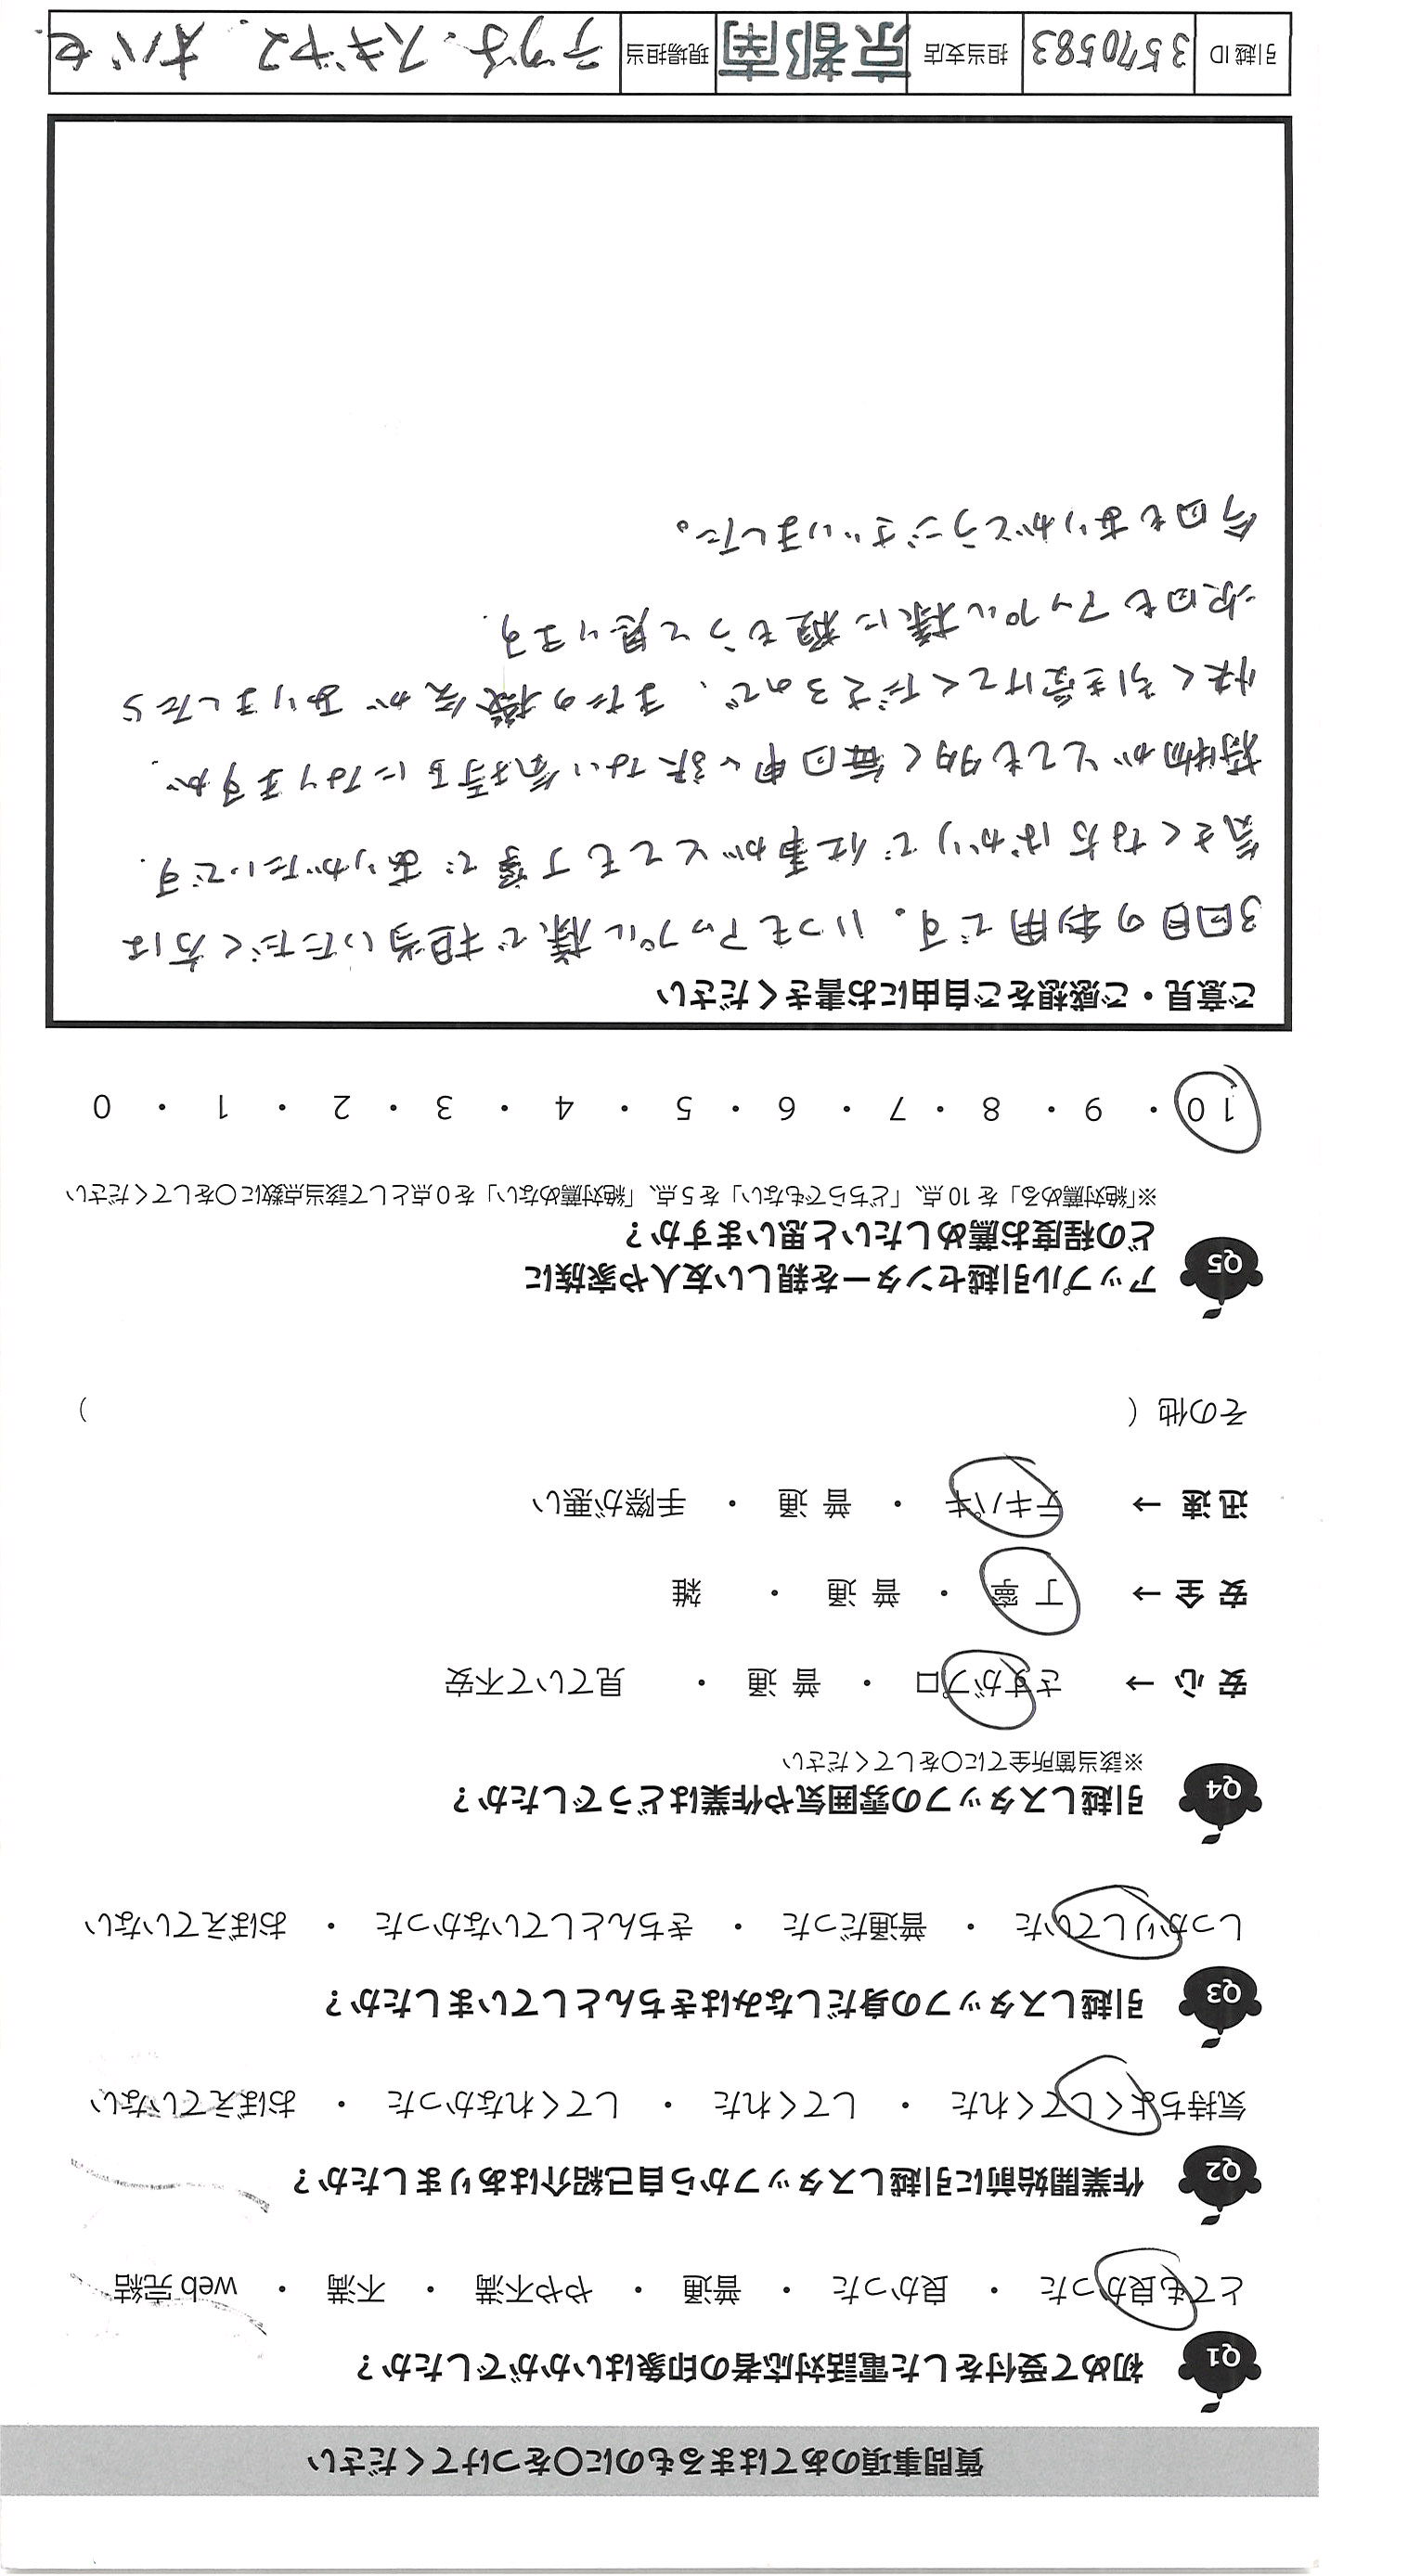 質問事項のあてはまるものに○をつけてください
Q1 初めて受付をした電話対応者の印象はいかがでしたか？
とても良かった ・ 良かった ・ 普通 ・ やや不満 ・ 不満 ・ web 完結
Q2 作業開始前に引越しスタッフから自己紹介はありましたか？
気持ちよくしてくれた ・ してくれた ・ してくれなかった ・ おぼえていない
Q3 引越しスタッフの身だしなみはきちんとしていましたか？
しっかりしていた ・ 普通だった ・ きちんとしていなかった ・ おぼえていない
Q4 引越しスタッフの雰囲気や作業はどうでしたか？
※該当箇所全てに○をしてください
安 心 → さすがプロ ・ 普 通 ・ 見ていて不安
安 全 → 丁 寧 ・ 普 通 ・ 雑
迅 速 → テキパキ ・ 普 通 ・ 手際が悪い
その他（ ）
Q5 アップル引越センターを親しい友人や家族に
どの程度お薦めしたいと思いますか？
※「絶対薦める」を 10 点、「どちらでもない」を 5 点、「絶対薦めない」を 0 点として該当点数に○をしてください
10 ・ 9 ・ 8 ・ 7 ・ 6 ・ 5 ・ 4 ・ 3 ・ 2 ・ 1 ・ 0
ご意見・ご感想をご自由にお書きください
3回目の利用です。いつもアップル様で担当いただく方は
気さくな方ばかりで仕事がとても丁寧でありがたいです.
荷物がとても多く毎回申し訳ない気持ちになりますが.
快く引き受けてくださるので、またの機会がありましたら
次回もアップル様に頼もうと思います.
今回もありがとうございました。
引越 ID 3570583 担当支店 京都南 現場担当 スギヤマ. オバセ